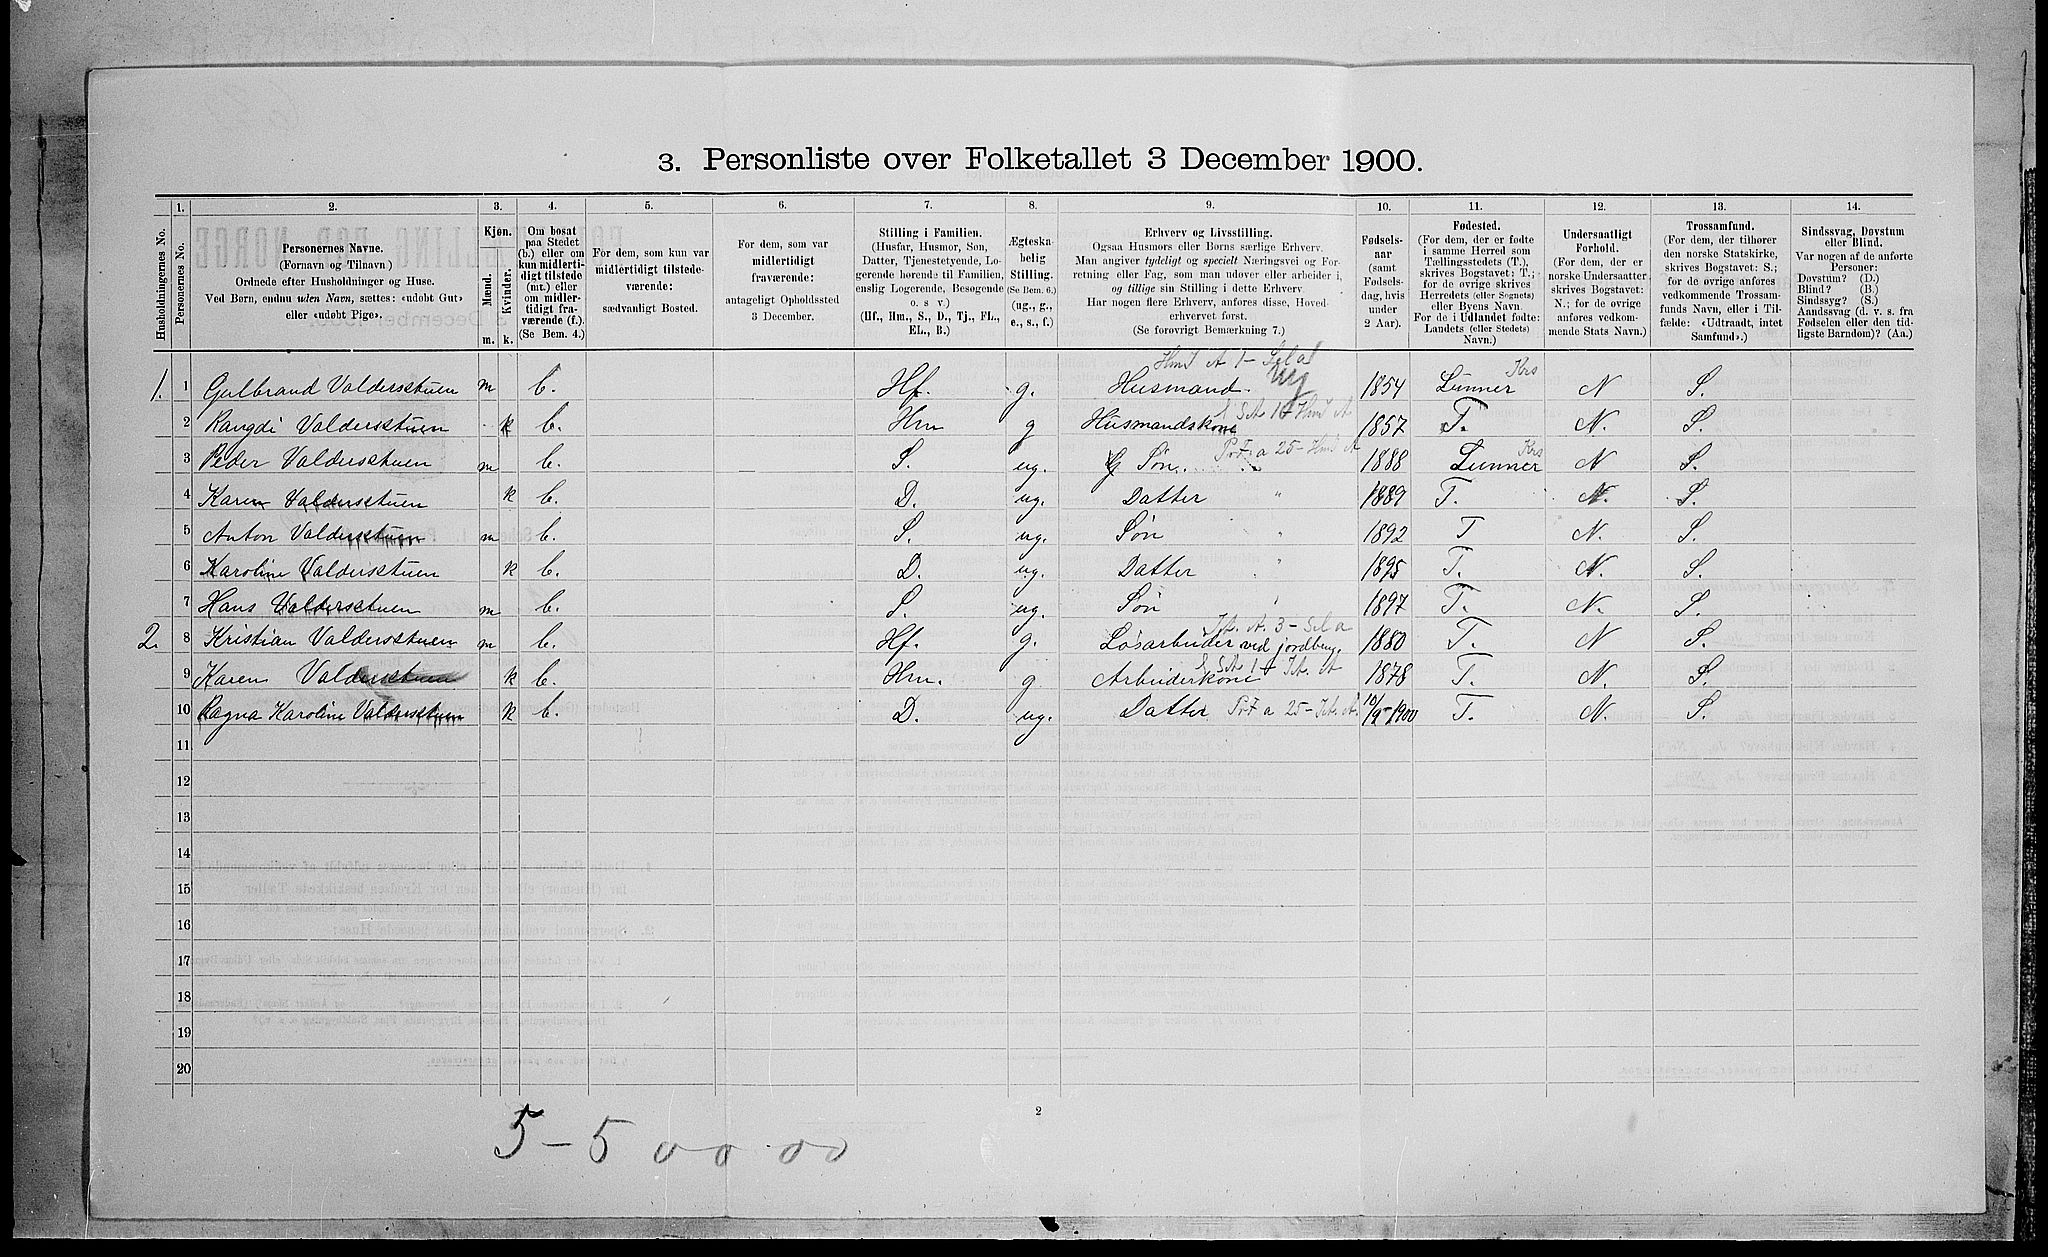 3. Personliste over Folketallet 3 December 1900.
1. 2. 3. 4. 5. 6. 7. 8. 9. 10. 11. 12. 13. 14.
Husholdningernes No.
Personernes No.
Personernes Navne.
(Fornavn og Tilnavn.)
Ordnede efter Husholdninger og Huse.
Ved Børn, endnu uden Navn, sættes: «udøbt Gut»
eller «udøbt Pige».
Kjøn.
Mænd.
Kvinder.
m. k.
Om bosat
paa Stedet
(b.) eller om
kun midlerti-
digt tilstede
(mt.) eller
om midler-
tidigt fra-
værende (f.).
(Se Bem. 4.)
For dem, som kun var
midlertidigt tilstede-
værende:
sædvanligt Bosted.
For dem, som var
midlertidigt
fraværende:
antageligt Opholdssted
3 December.
Stilling i Familien.
(Husfar, Husmor, Søn,
Datter, Tjenestetyende, Lo-
gerende hørende til Familien,
enslig Logerende, Besøgende
o. s. v.)
(Hf., Hm., S., D., Tj., FL.,
EL., B.)
Ægteska-
belig
Stilling.
(Se Bem. 6.)
(ug., g.,
e., s., f.)
Erhverv og Livsstilling.
Ogsaa Husmors eller Børns særlige Erhverv.
Man angiver tydeligt og specielt Næringsvei og For-
retning eller Fag, som man udøver eller arbeider i,
og tillige sin Stilling i dette Erhverv.
Har nogen flere Erhverv, anføres disse, Hoved-
erhvervet først.
(Se forøvrigt Bemærkning 7.)
Fødsels-
aar
(samt
Fødsels-
dag, hvis
under
2 Aar).
Fødested.
(For dem, der er fødte
i samme Herred som
Tællingsstedets (T.),
skrives Bogstavet: T.;
for de øvrige skrives
Herredets (eller Sognets)
eller Byens Navn.
For de i Udlandet fødte:
Landets (eller Stedets)
Navn.)
Undersaatligt
Forhold.
(For dem, der er
norske Undersaatter,
skrives Bogstavet:
N.; for de øvrige
anføres vedkom-
mende Stats Navn.)
Trossamfund.
(For dem, der tilhører
den norske Statskirke,
skrives Bogstavet: S.;
for de øvrige anføres
vedkommende Trossam-
funds Navn, eller i Til-
fælde: «Udtraadt, intet
Samfund».)
Sindssvag, Døvstum
eller Blind.
Var nogen af de anførte
Personer:
Døvstum? (D.)
Blind? (B.)
Sindssyg? (S.)
Aandssvag (d. v. s. fra
Fødselen eller den tid-
ligste Barndom)? (Aa.)
1. 1 Gulbrand Valdersstuen m b. Hf. g. Husmand. 1854 Lunner Krs N S.
2 Rangdi Valdersstuen k b. Hm g Husmandskone 1857 T. N. S.
3 Peder Valdersstuen m b. S. ug. Søn. 1888 Lunner Krs N S.
4 Karen Valdersstuen k b. D. ug. Datter " 1889 T. N. S.
5 Anton Valdersstuen m b. S. ug. Søn " 1892 T N. S.
6 Karoline Valdersstuen k b. D. ug. Datter " 1895 T. N. S.
7 Hans Valdersstuen m b. S. ug. Søn " 1897 T. N. S.
2. 8 Kristian Valdersstuen m b. Hf. g. Løsarbeider ved jordbrug. 1880 T. N S.
9 Karen Valdersstuen k b. Hm. g Arbeiderkone 1878 T. N. S.
10 Ragna Karoline Valdersstuen k b. D. ug. Datter 10/9-1900 T. N. S.
11
12
13
14
15
16
17
18
19
20
2
5-5 00 00